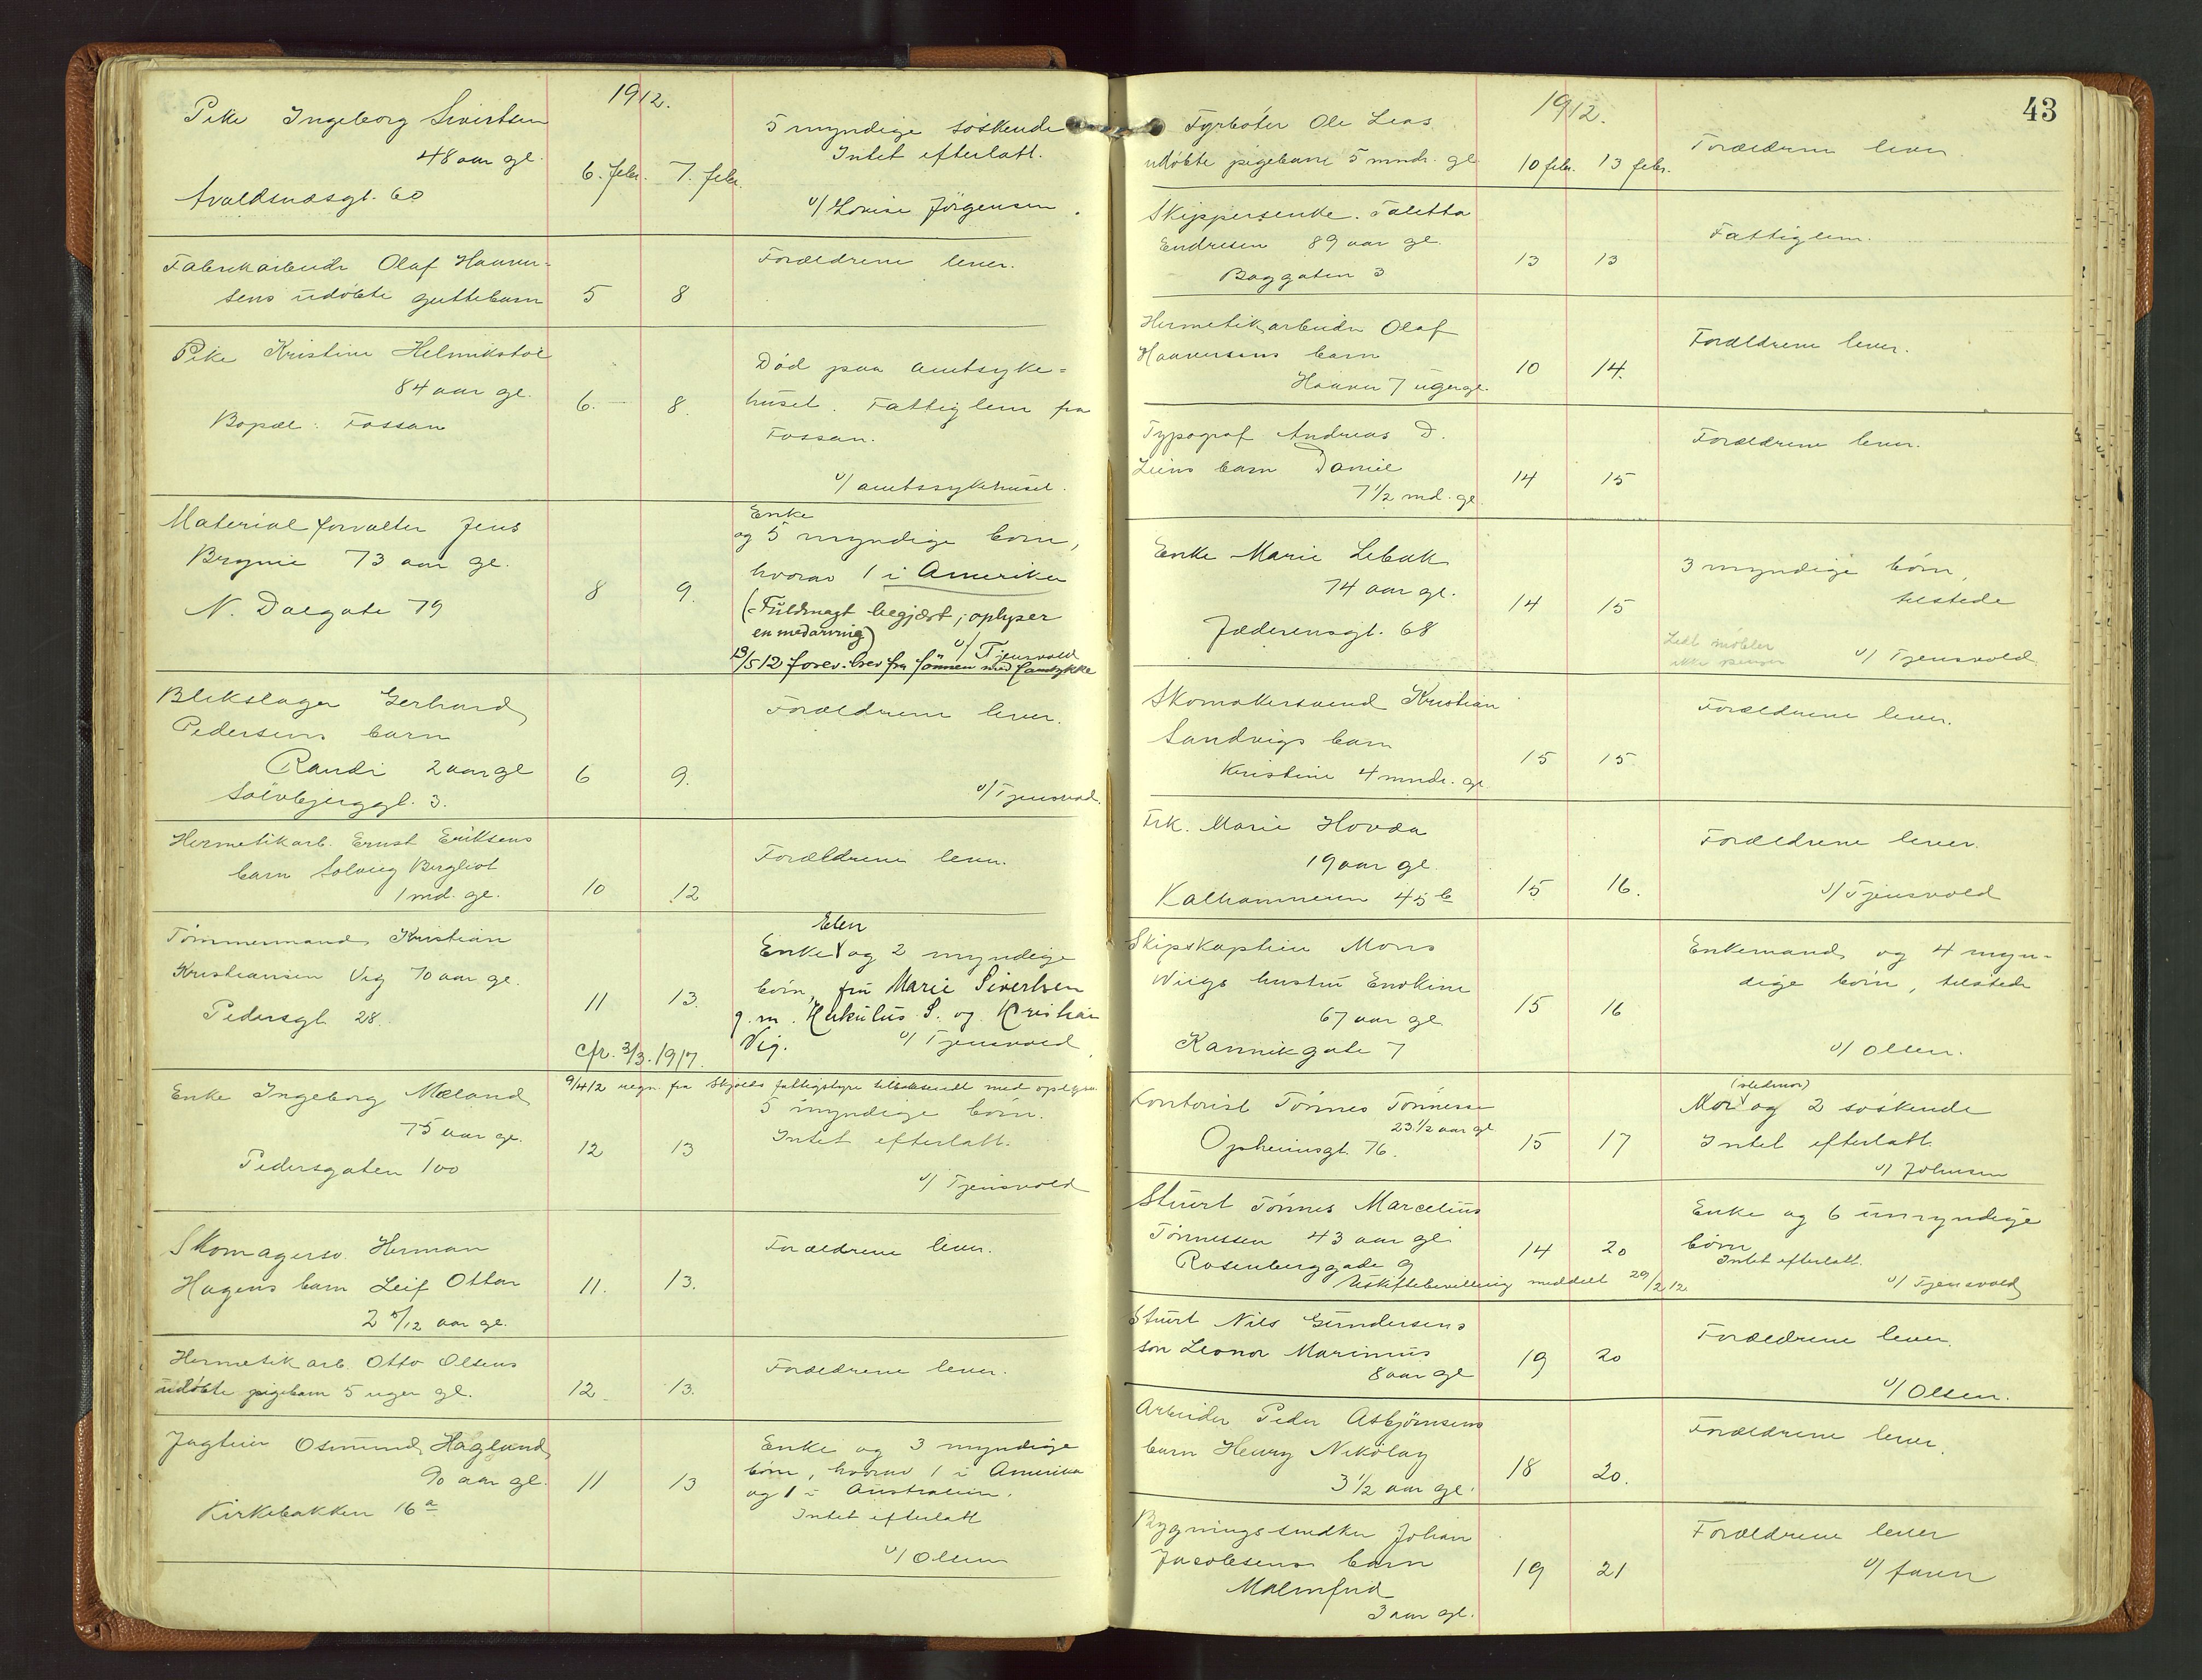 1912.
Pike Ingeborg Sivertsen
48 aar gl.
Avaldsnæsgt. 60
6. febr. 7. febr.
5 myndige søskende
Intet efterlatt.
v/ Lovise Jørgensen.
Fabrikarbeider Olaf Haaver-
sens udøbte guttebarn
5 8
Forældrene lever.
Pike Kristine Helmikstøl
84 aar gl.
Bopæl: Fossan
6. — 8.
Død paa amtsyke-
huset. Fattiglem fra
Fossan.
v/ amtssykehuset.
Materialforvalter Jens
Brynie 73 aar gl.
N. Dalgate 79
8 9.
Enke
og 5 myndige børn,
hvorav 1 i Amerika
(Fuldmagt begjært, oplyser
en medarving)
v/ Tjensvold
13/5 12 forev. brev fra sønnen med samtykke
Blikslager Gerhard
Pedersens barn
Randi 2 aar gl
Sølvbjerggt. 3.
6 9.
Forældrene lever.
v/ Tjensvold.
Hermetikarb. Ernst Eriksens
barn Solveig Bergliot
1 md. gl.
10 12
Forældrene lever.
Tømmermand Kristian
Kristiansen Vig 70 aar gl.
Pedersgt. 28.
11 13.
cfr. 3/3. 1917.
Elen
Enke og 2 myndige
børn, fru Marie Sivertsen
g. m. Herkulus S. og Kristian
Vig. v/ Tjensvold
9/4 12 regn. fra Skjolds fattigstyre tilbakesendt med oplysn.
Enke Ingeborg Mæland
75 aar gl.
Pedersgaten 100
12 13
5 myndige børn.
Intet efterlatt.
v/ Tjensvold
Skomagersv. Herman
Hagens barn Leif Ottar
2 5/12 aar gl.
11. 13.
Forældrene lever.
Hermetikarb. Otto Olsens
udøbte pigebarn 5 uger gl.
12 13.
Forældrene lever.
Jagteier Osmund Haglund
90 aar gl.
Kirkebakken 16 a
11 13
Enke og 3 myndige
børn, hvorav 1 i Amerika
og 1 i Australien.
Intet efterlatt
v/ Olsen
43
1912.
Fyrbøter Ole Leas
udøbte pigebarn 5 mndr. gl
10 febr. 13 febr.
Forældrene lever
Skippersenke Taletta
Endresen 89 aar gl.
Baggaten 3
13 13
Fattiglem.
Hermetikarbeider Olaf
Haaversens barn
Haaver 7 uger gl.
10 14.
Forældrene lever.
Typograf Andreas D.
Leins barn Daniel
7 1/2 md. gl.
14 15
Forældrene lever.
Enke Marie Lebak
74 aar gl.
Jæderensgt. 68
14 15
3 myndige børn,
tilstede
Litt møbler
ikke penger
v/ Tjensvold
Skomakersvend Kristian
Sandvigs barn
Kristine 4 mndr. gl.
15 15.
Forældrene lever.
Frk. Marie Hovda
19 aar gl.
Kalhammeren 45 b
15 16.
Forældrene lever.
v/ Tjensvold
Skipskaptein Mons
Wiigs hustru Enokine
67 aar gl
Kannikgate 7
15 16
Enkemand og 4 myn-
dige børn, tilstede
v/ Olsen.
Kontorist Tønnes Tønnessen
23 1/2 aar gl
Opheimsgt. 76.
15 17
(stedmor)
Mor og 2 søskende
Intet efterlatt.
v/ Johnsen
Stuert Tønnes Marcelius
Tønnessen 43 aar gl.
Rosenberggade 9
14 20
Enke og 6 umyndige
børn
Intet efterlatt.
v/ Tjensvold
Uskiftebevilling meddelt 29/2 12.
Stuert Nils Gundersens
søn Leonor Marinius
8 aar gl
19 20
Forældrene lever.
v/ Olsen.
Arbeider Peder Asbjørnsens
barn Henry Nikolay
3 1/2 aar gl.
18 20.
Forældrene lever.
Bygningssnedker Johan
Jacobsens barn
Malmfrid
3 aar gl.
19 21
Forældrene lever
v/ faren